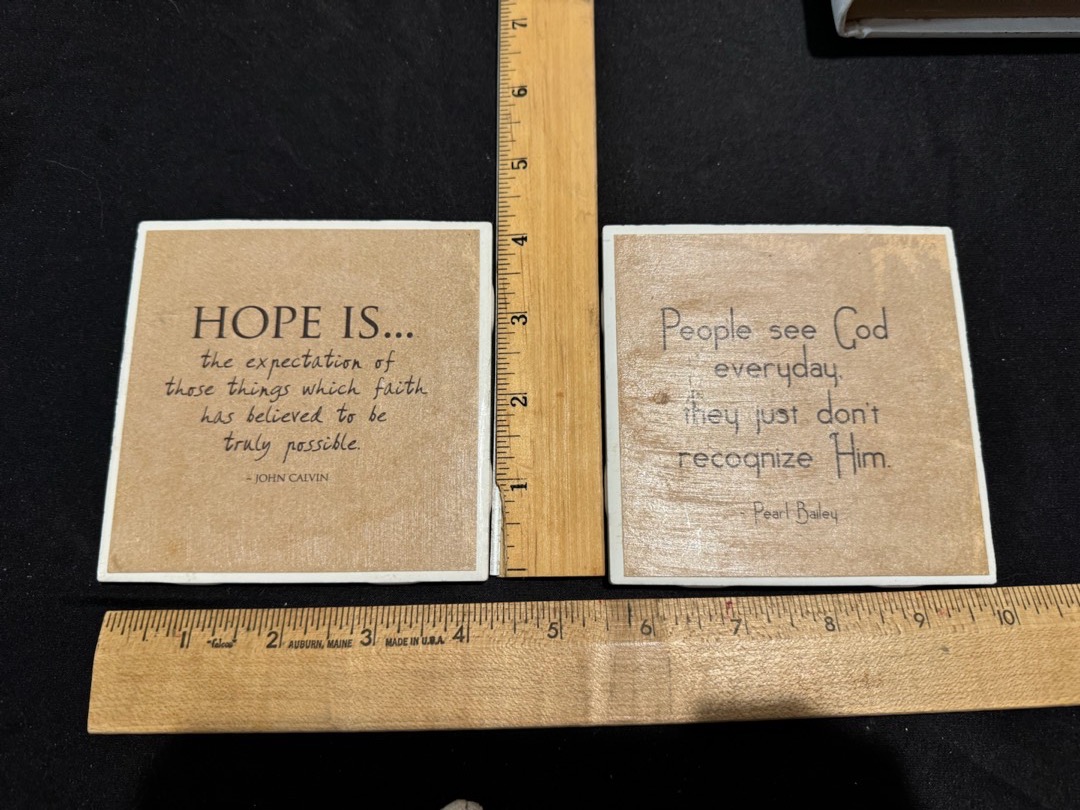 HOPE IS...
the expectation of
those things which faith
has believed to be
truly possible.
~ JOHN CALVIN
People see God
everyday,
they just don't
recognize Him.
- Pearl Bailey
7
6
5
4
3
2
1
1 "falcon" 2 AUBURN, MAINE 3 MADE IN U.S.A. 4 5 6 7 8 9 10